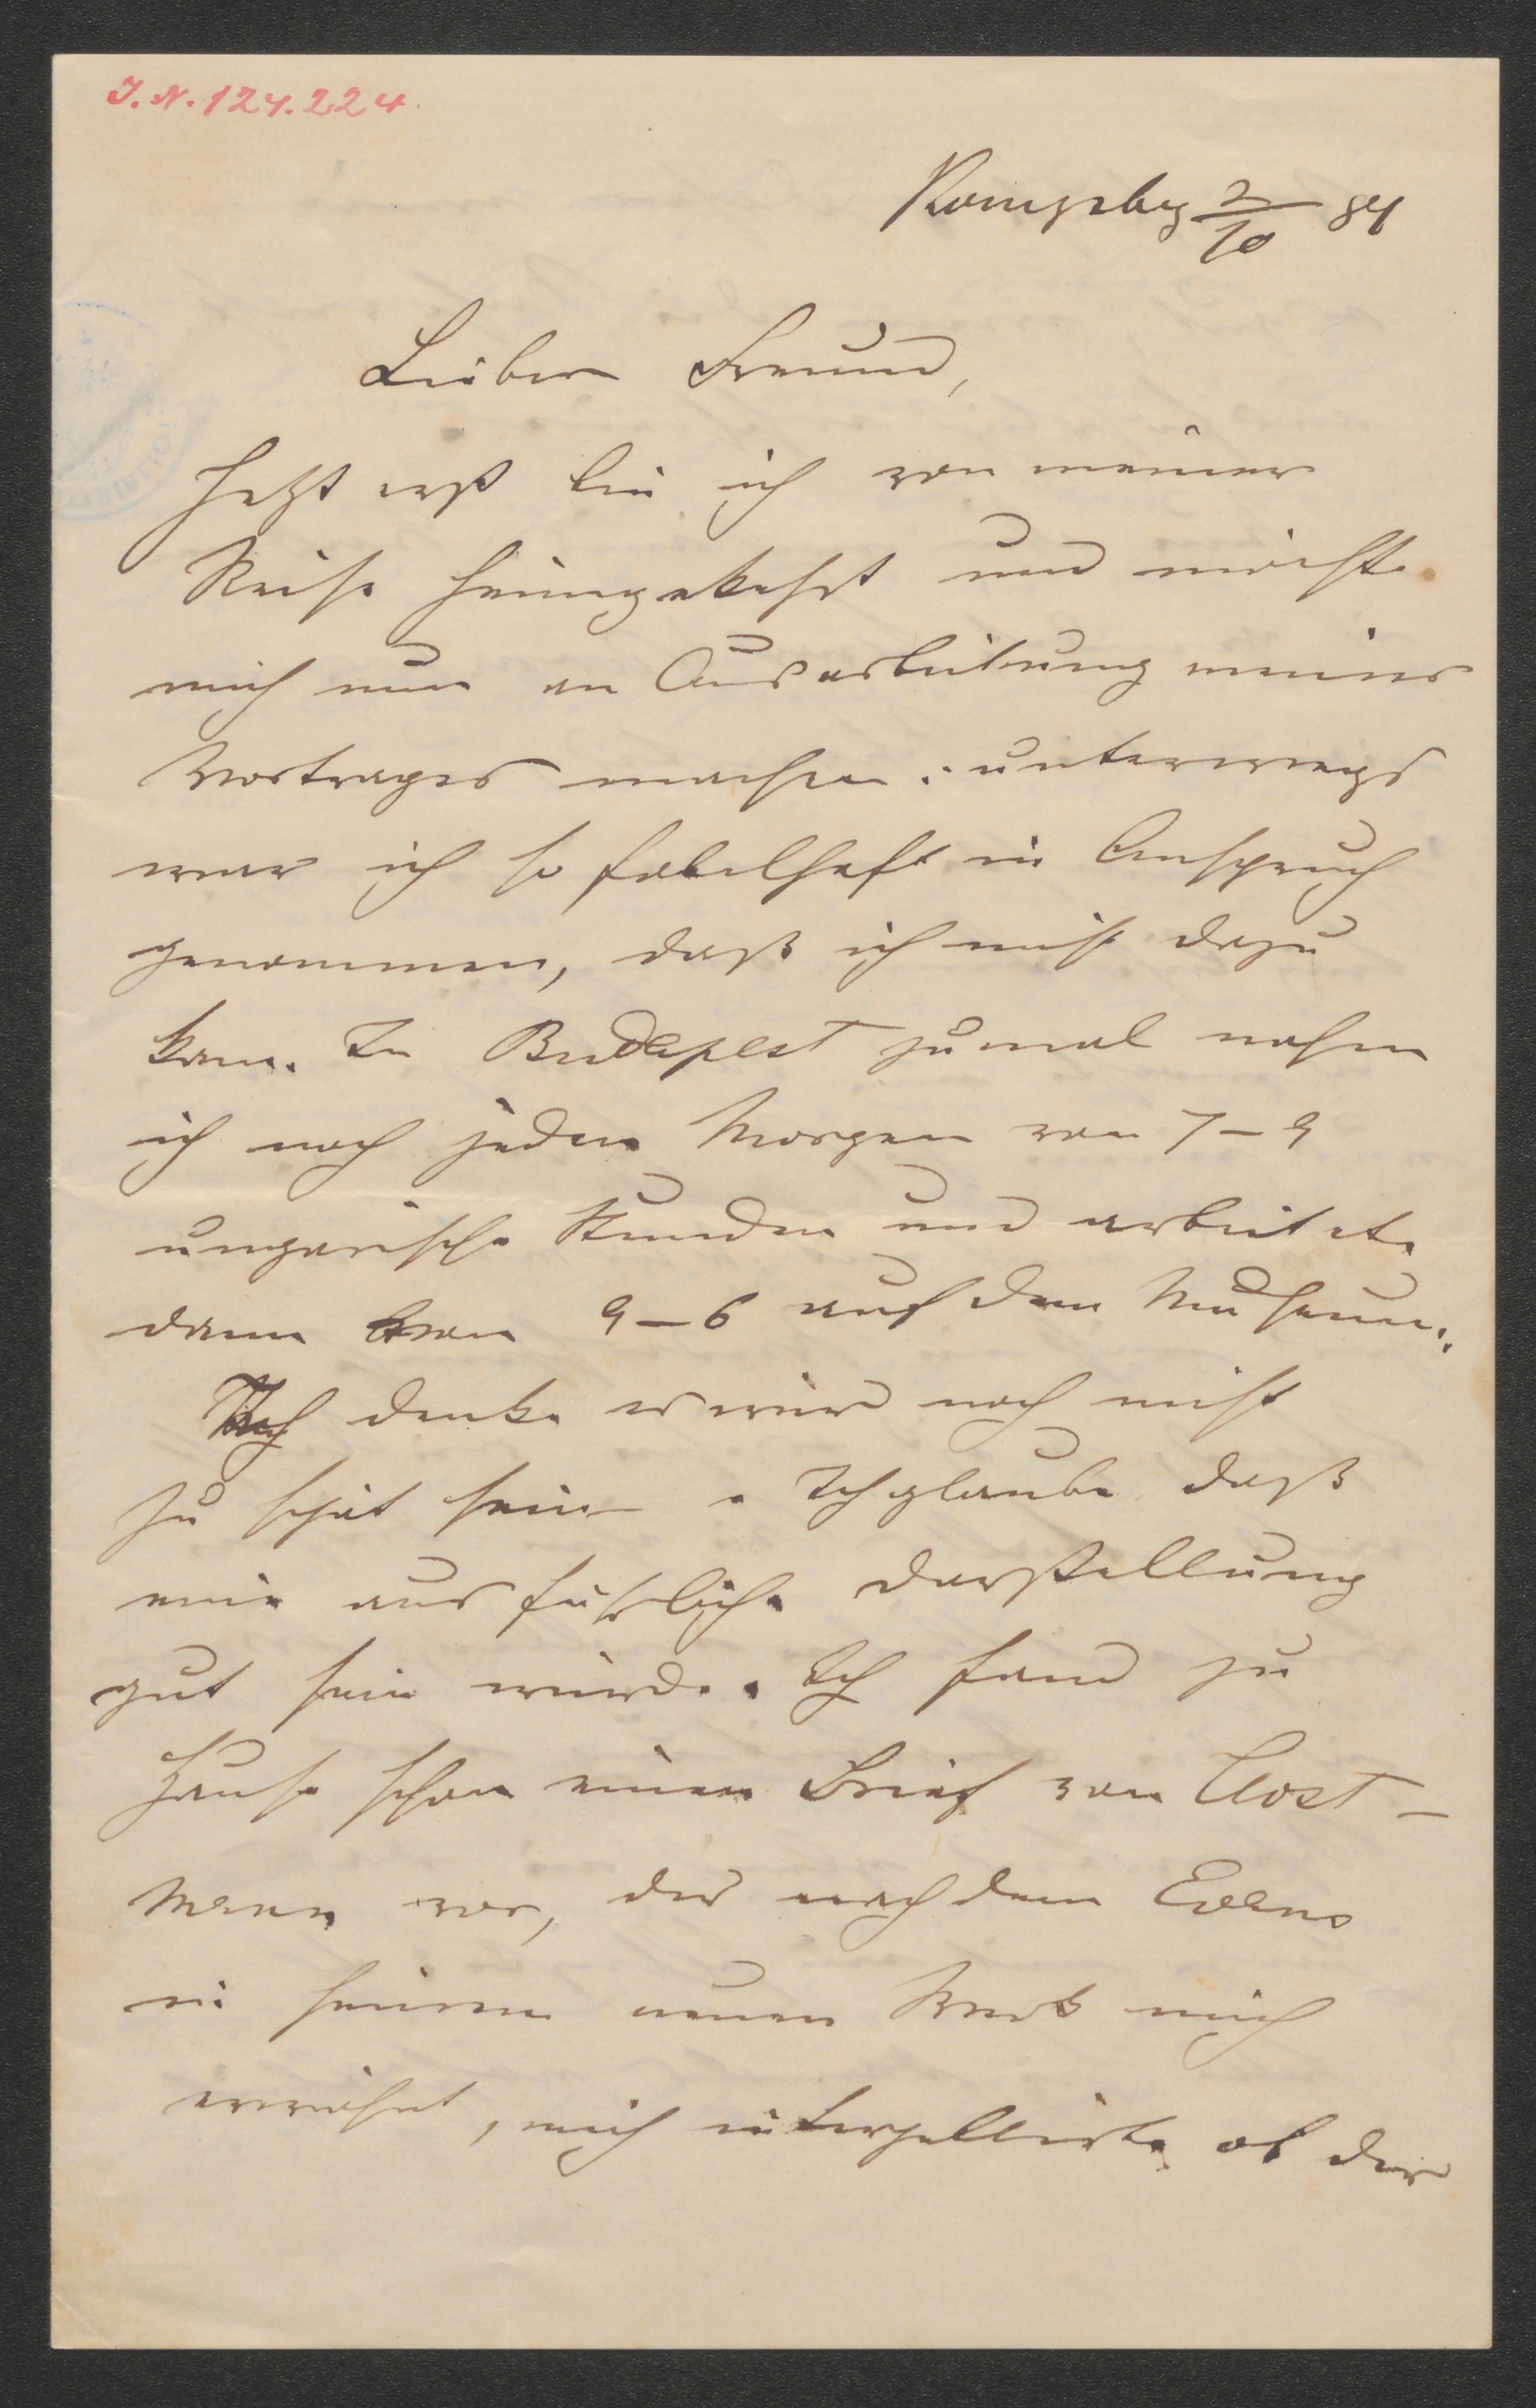 J. N. 124.224
Königsbg 2/10 84
Lieber Freund,
Jetzt erst bin ich von meiner
Reise heimgekehrt und möchte
mich nun an Ausarbeitung meines
Vortrages machen: unterwegs
war ich so fabelhaft in Anspruch
genommen, daß ich nicht dazu
kam. In Budapest zumal nahm
ich noch jeden Morgen von 7–9
ungarische Stunden und arbeitete
dann von 9–6 auf dem Museum.
Ich denke es wird noch nicht
zu spät sein. Ich glaube daß
eine ausführliche Darstellung
gut sein würde. Ich fand zu
Hause schon einen Brief von Host-
mann vor, der nach dem Evans
in seinem neuen Werk mich
erwähnt, mich interpellirte ob der